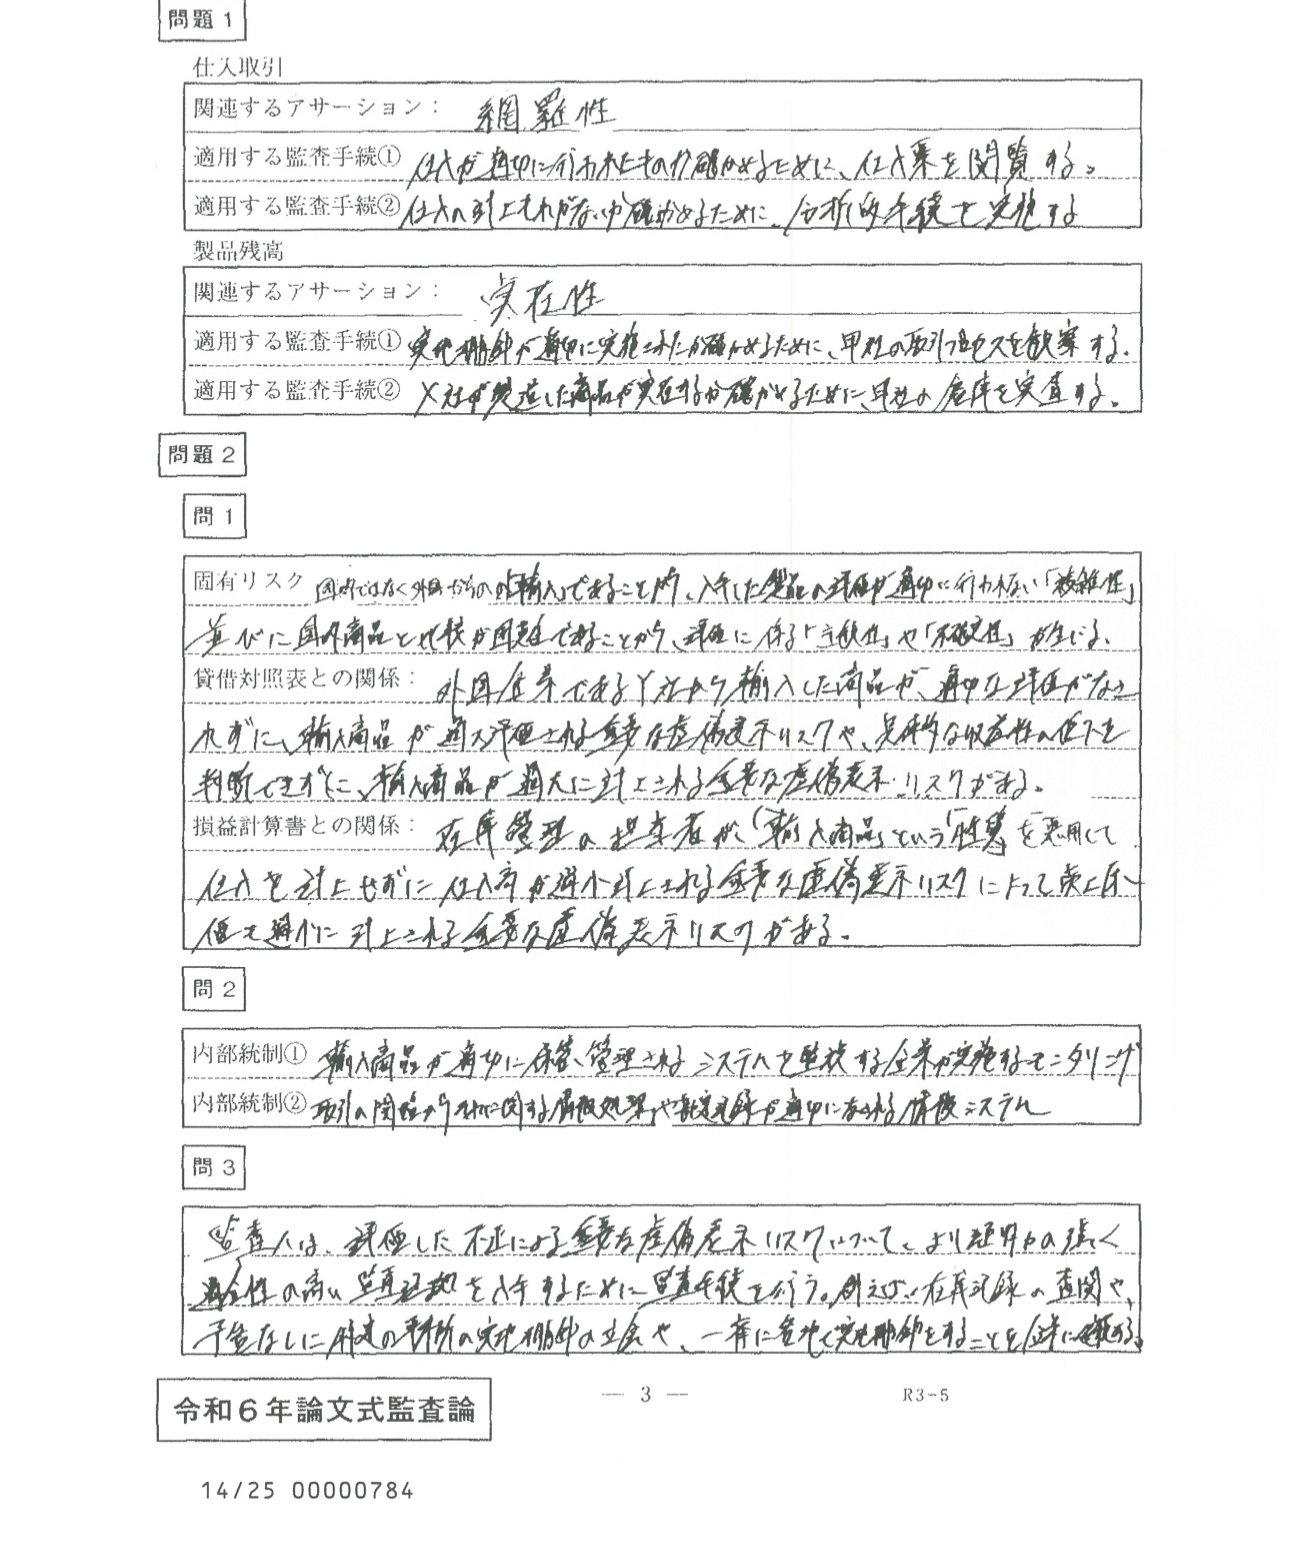 問題1
仕入取引
関連するアサーション： 網羅性
適用する監査手続① 仕入が適切に行われたものか確かめるために、仕入票を閲覧する。
適用する監査手続② 仕入の計上もれがないか確かめるために、分析的手続を実施する
製品残高
関連するアサーション： 実在性
適用する監査手続① 実地棚卸が適切に実施されたか確かめるために、甲社の取引プロセスを観察する。
適用する監査手続② X社が製造した商品が実在するか確かめるために、甲社の倉庫を実査する。
問題2
問1
固有リスク 国内ではなく外国からの「輸入」であることから、入手した製品の評価が適切に行われない「複雑性」
並びに国内商品と比較が困難であることから、評価に係る「主観性」や「不確実性」が生じる。
貸借対照表との関係： 外国企業であるY社から輸入した商品が、適切な評価がなさ
れずに、輸入商品が過大評価される重要な虚偽表示リスクや、具体的な収益性の低下を
判断できずに、輸入商品が過大に計上される重要な虚偽表示リスクがある。
損益計算書との関係： 在庫管理の担当者が、「輸入商品」という「性質」を悪用して
仕入を計上せずに仕入高が過小計上される重要な虚偽表示リスクによって売上原
価も過小に計上される重要な虚偽表示リスクがある。
問2
内部統制① 輸入商品が適切に保管、管理されるシステムを監視する企業が実施するモニタリング
内部統制② 取引の開始からそれに関する情報処理や記録が適切になされる情報システム
問3
監査人は、評価した不正による重要な虚偽表示リスクについて、より証明力の強く
適合性の高い監査証拠を入手するために監査手続を行う。例えば、在庫記録の査閲や、
予告なしに特定の事業所の実地棚卸の立会や、一斉に各地で実地棚卸をすることを
— 3 —
R3-5
令和6年論文式監査論
14/25 00000784